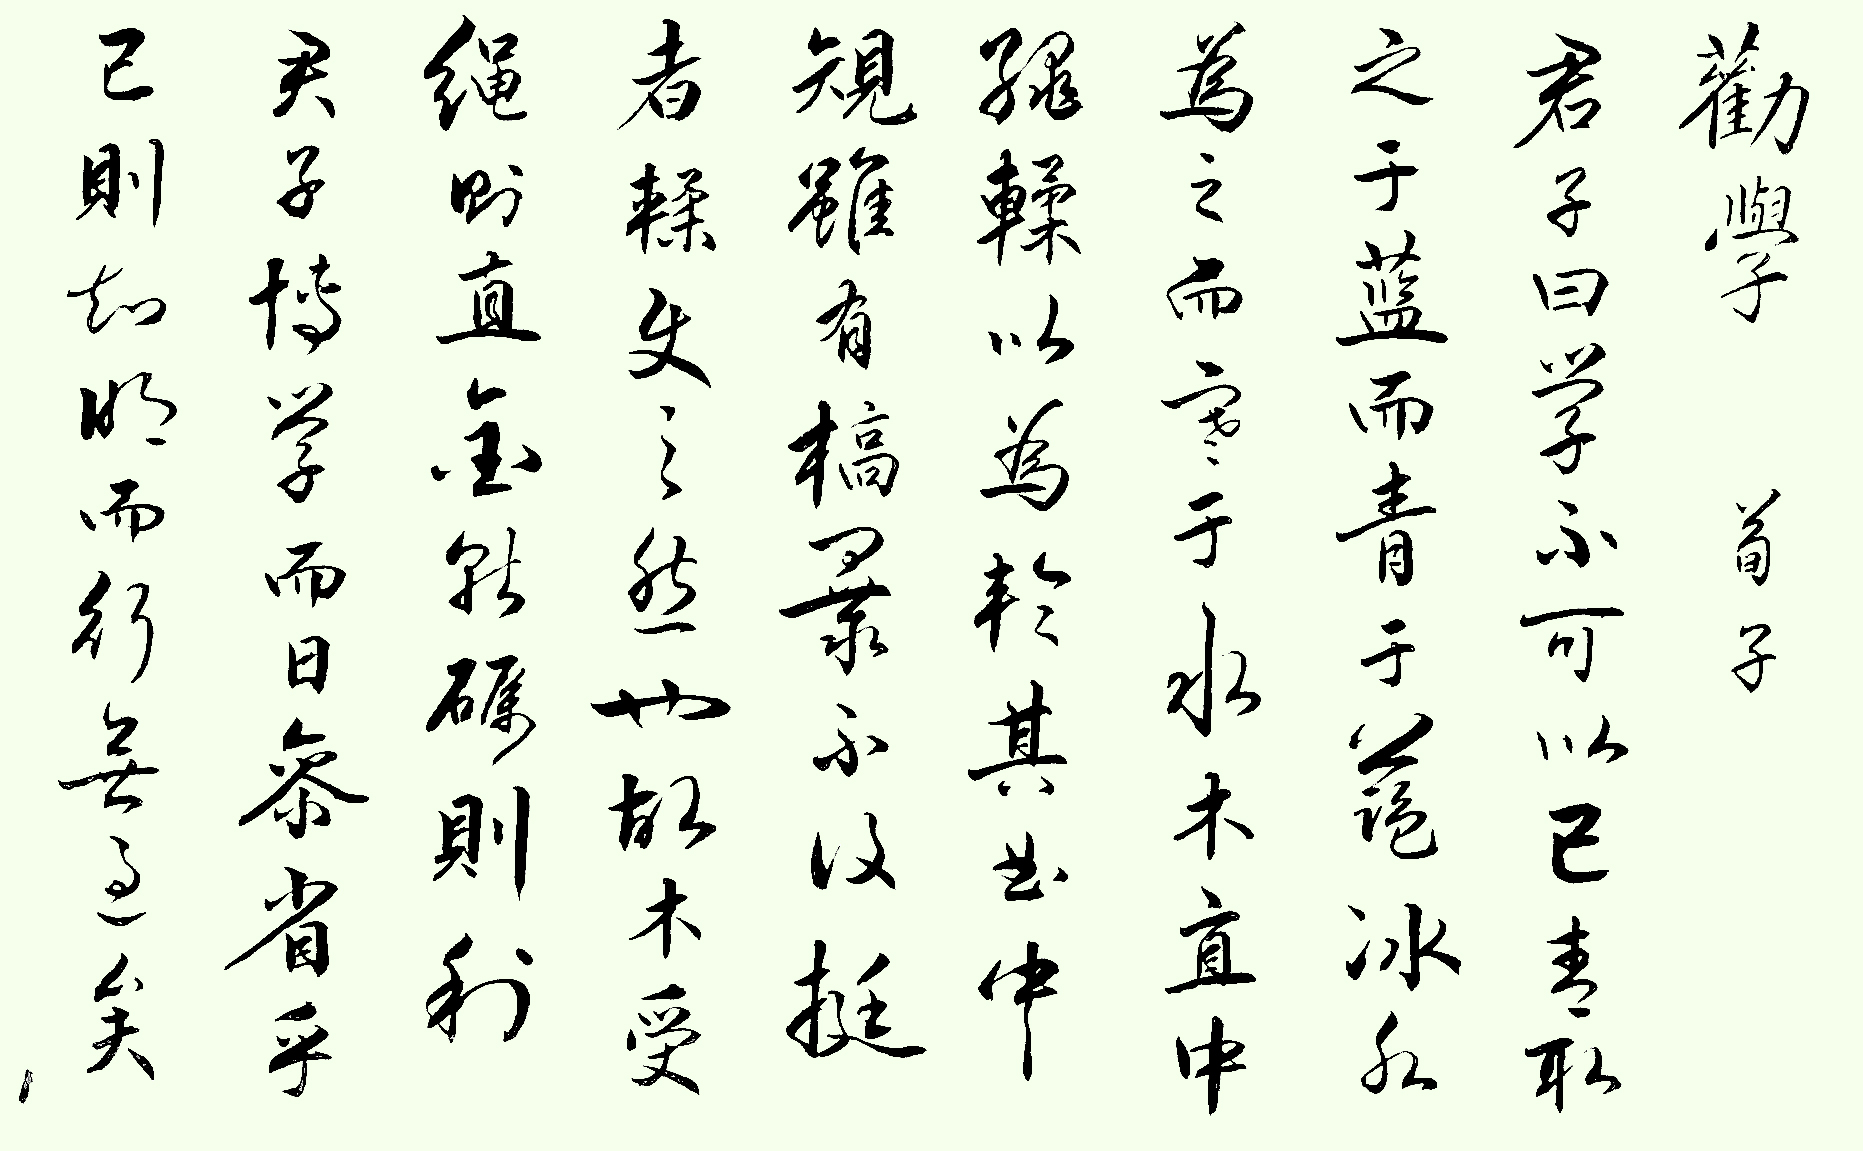 勸學 荀子
君子曰学不可以已青取
之于蓝而青于蓝冰水
為之而寒于水木直中
繩輮以為輪其曲中
規雖有槁暴不復挺
者輮使之然也故木受
绳则直金就砺則利
君子博学而日參省乎
己則知明而行無過矣